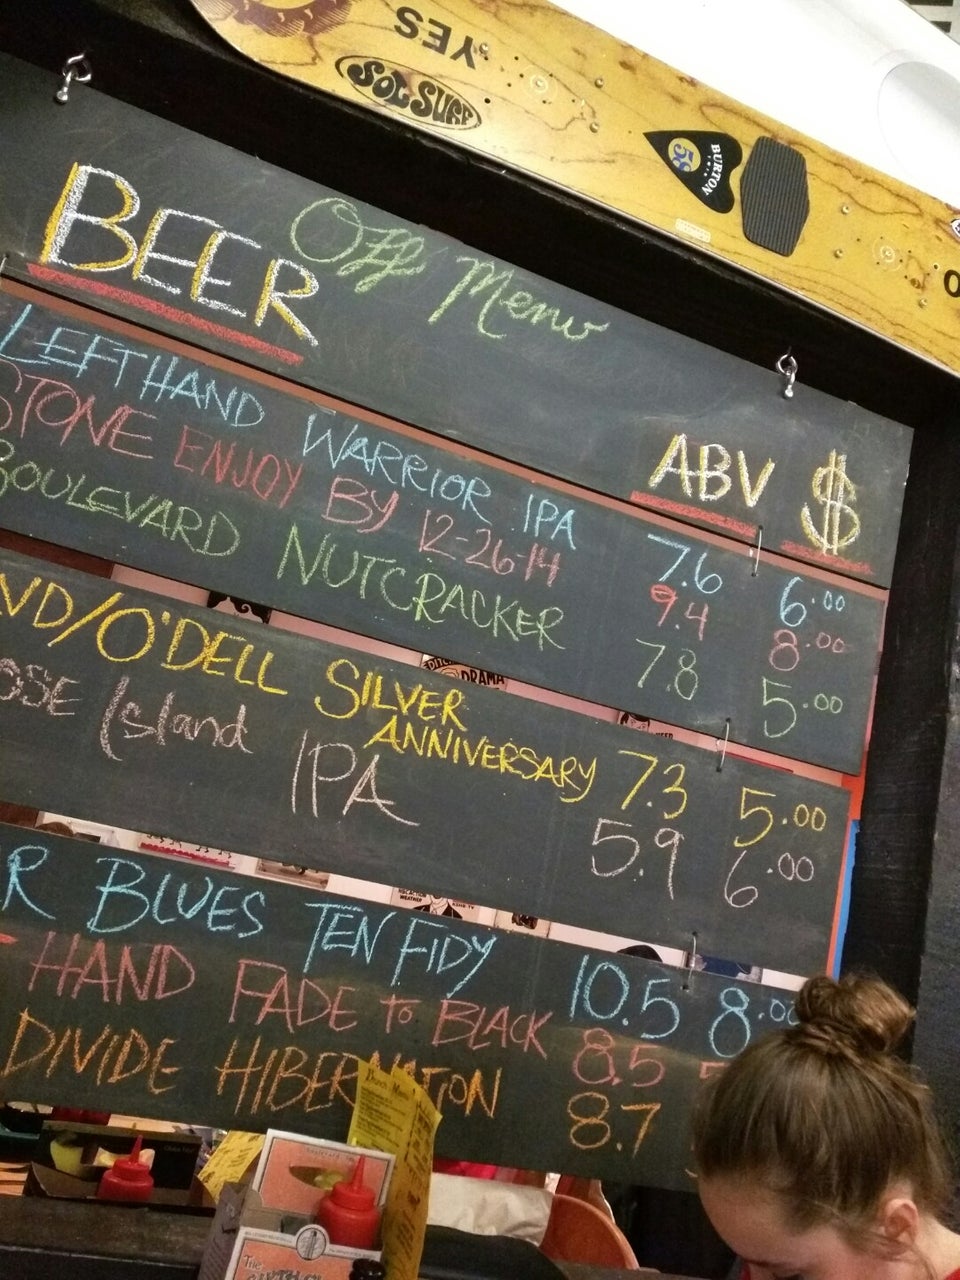 YES
SOL SURF
BURTON
BEER Off Menu
ABV $
LEFTHAND WARRIOR IPA 7.6 6.00
STONE ENJOY BY 12-26-14 9.4 8.00
BOULEVARD NUTCRACKER 7.8 5.00
VD/O'DELL SILVER ANNIVERSARY 7.3 5.00
OSE Island IPA 5.9 6.00
R BLUES TEN FIDY 10.5 8.00
HAND FADE TO BLACK 8.5
DIVIDE HIBERNATION 8.7
DRAMA